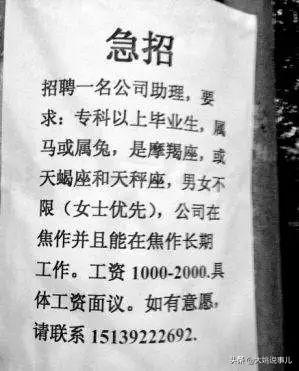 急招
招聘一名公司助理，要
求：专科以上毕业生，属
马或属兔，是摩羯座，或
天蝎座和天秤座，男女不
限（女士优先），公司在
焦作并且能在焦作长期
工作。工资 1000-2000.具
体工资面议。如有意愿，
请联系 15139222692.
头条 @大姚说事儿